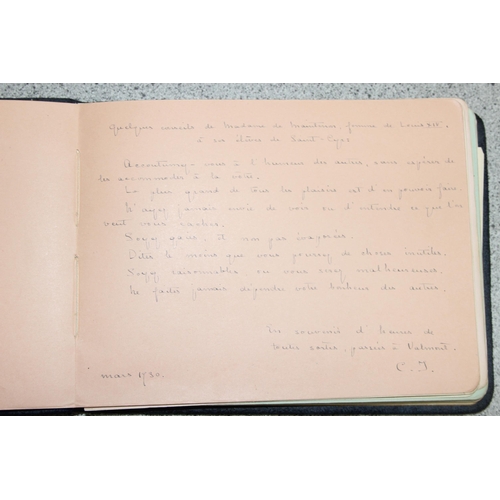 Quelques conseils de Madame de Maintenon, femme de Louis XIV,
à ses élèves de Saint-Cyr
Accoutumez-vous à l'humeur des autres, sans espérer de
les accommoder à la vôtre.
Le plus grand de tous les plaisirs est d'en pouvoir faire.
N'ayez jamais envie de voir ou d'entendre ce que l'on
veut vous cacher.
Soyez gaies, et non pas évaporées.
Dites le moins que vous pourrez de choses inutiles.
Soyez raisonnables, ou vous serez malheureuses.
Ne faites jamais dépendre votre bonheur des autres.
En souvenir d'heures de
toutes sortes, passées à Valmont.
mars 1930.
C. J.